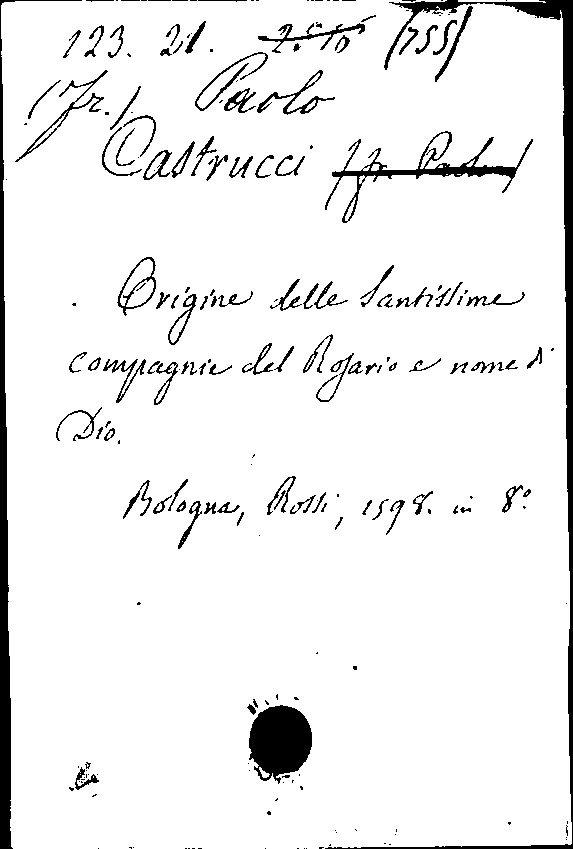 123. 21. (755)
(Fr.) Paolo
Castrucci (fr. Paolo)
Origine delle Santissime
compagnie del Rosario e nome di
Dio.
Bologna, Rossi, 1598. in 8º